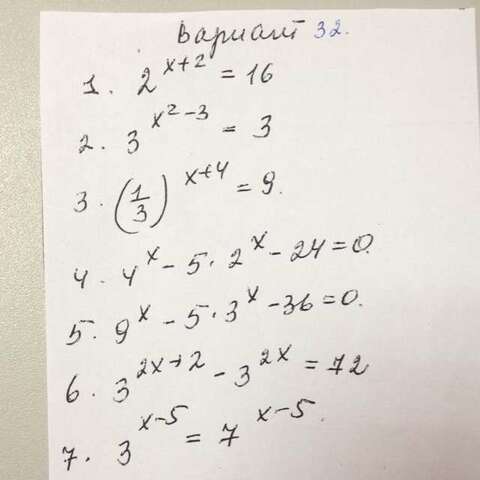 Вариант 32.
1. 2^{x+2} = 16
2. 3^{x^2-3} = 3
3. (1/3)^{x+4} = 9.
4. 4^x - 5 · 2^x - 24 = 0.
5. 9^x - 5 · 3^x - 36 = 0.
6. 3^{2x+2} - 3^{2x} = 72
7. 3^{x-5} = 7^{x-5}.